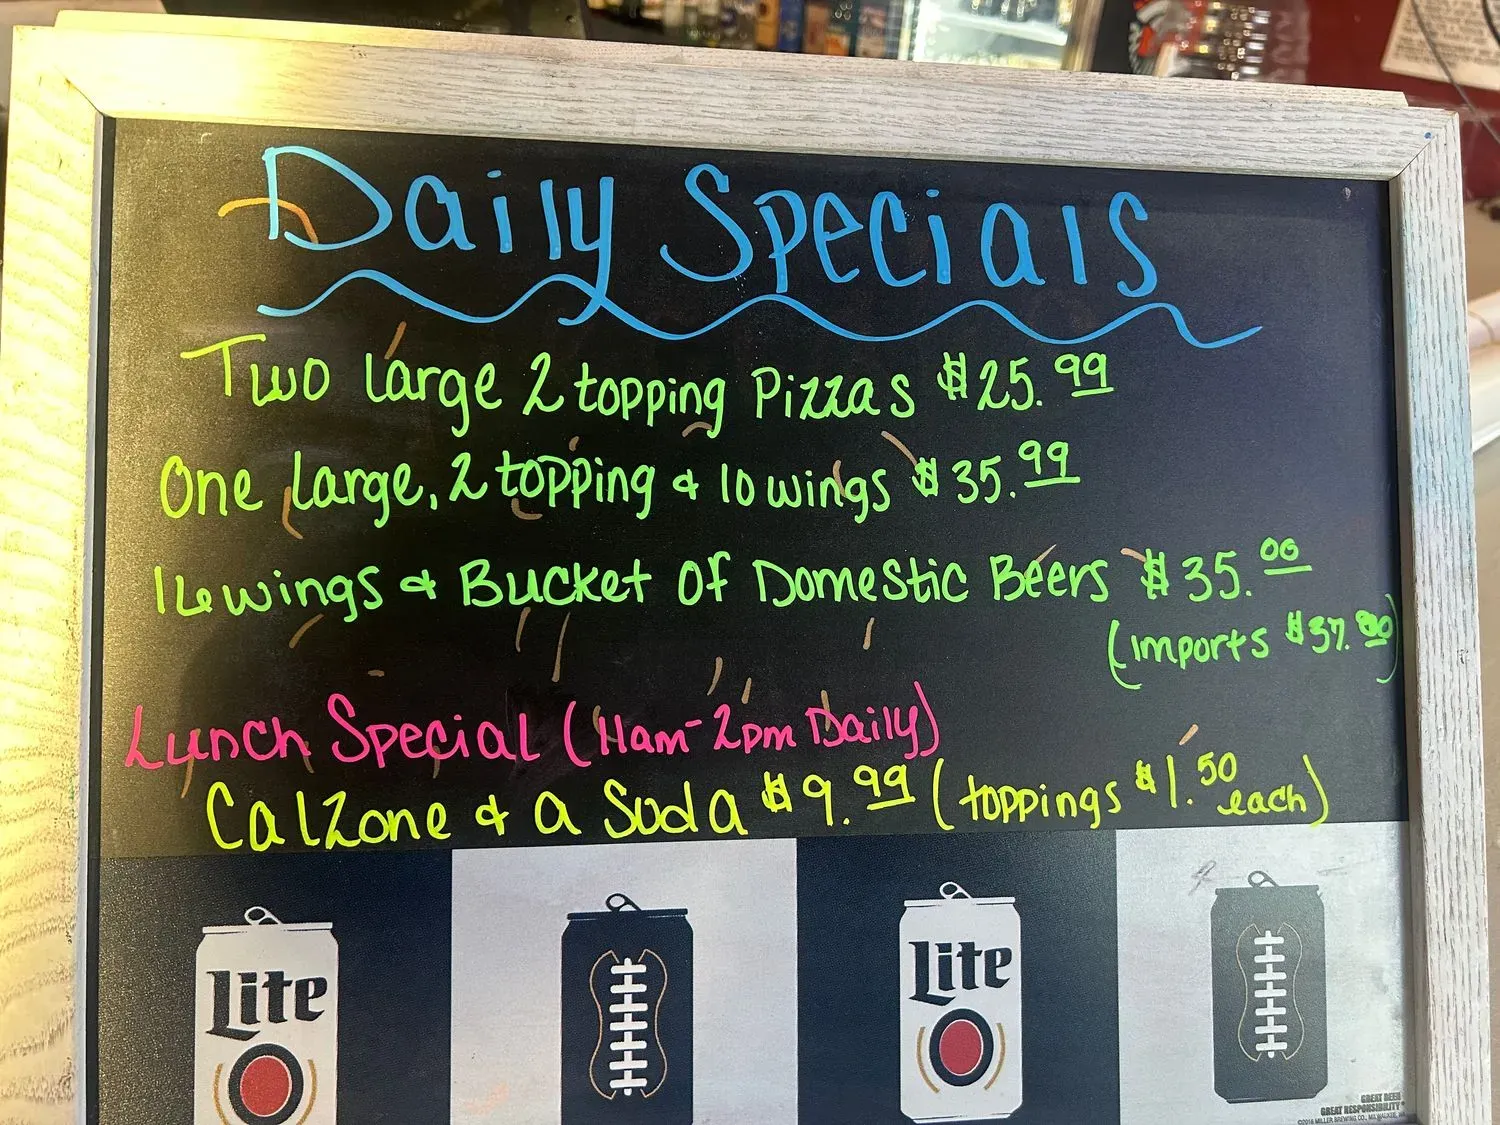 Daily Specials
Two large 2 topping Pizzas $25.99
One large, 2 topping & 10 wings $35.99
16 wings & Bucket of Domestic Beers $35.00
(imports $37.00)
Lunch Special (11am-2pm Daily)
Calzone & a Soda $9.99 (toppings $1.50 each)
Lite
Lite
GREAT BEER
GREAT RESPONSIBILITY®
©2016 MILLER BREWING CO., MILWAUKEE, WI